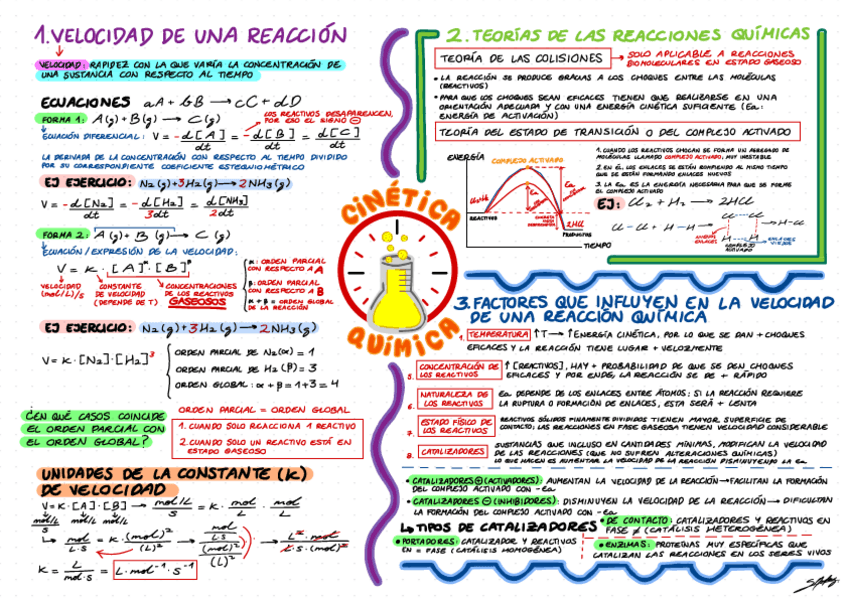 1. VELOCIDAD DE UNA REACCIÓN
VELOCIDAD: RAPIDEZ CON LA QUE VARÍA LA CONCENTRACIÓN DE
UNA SUSTANCIA CON RESPECTO AL TIEMPO
ECUACIONES aA + bB → cC + dD
FORMA 1: A(g) + B(g) → C(g)
LOS REACTIVOS DESAPARENCEN,
POR ESO EL SIGNO ⊖
ECUACIÓN DIFERENCIAL: V = -d[A]/dt = -d[B]/dt = d[C]/dt
LA DERIVADA DE LA CONCENTRACIÓN CON RESPECTO AL TIEMPO DIVIDIDO
POR SU CORRESPONDIENTE COEFICIENTE ESTEQUIOMÉTRICO
EJ EJERCICIO: N₂(g) + 3H₂(g) → 2NH₃(g)
V = -d[N₂]/dt = -d[H₂]/3dt = d[NH₃]/2dt
FORMA 2: A(g) + B(g) → C(g)
ECUACIÓN/EXPRESIÓN DE LA VELOCIDAD:
V = K · [A]^α · [B]^β
VELOCIDAD (mol/L)/s
CONSTANTE DE VELOCIDAD (DEPENDE DE T)
CONCENTRACIONES DE LOS REACTIVOS GASEOSOS
α: ORDEN PARCIAL
CON RESPECTO A A
β: ORDEN PARCIAL
CON RESPECTO A B
α + β = ORDEN GLOBAL
DE LA REACCIÓN
EJ EJERCICIO: N₂(g) + 3H₂(g) → 2NH₃(g)
V = K · [N₂] · [H₂]³
ORDEN PARCIAL DE N₂(α) = 1
ORDEN PARCIAL DE H₂(β) = 3
ORDEN GLOBAL: α + β = 1+3 = 4
¿EN QUÉ CASOS COINCIDE
EL ORDEN PARCIAL CON
EL ORDEN GLOBAL?
ORDEN PARCIAL = ORDEN GLOBAL
1. CUANDO SOLO REACCIONA 1 REACTIVO
2. CUANDO SOLO UN REACTIVO ESTÁ EN
ESTADO GASEOSO
UNIDADES DE LA CONSTANTE (K)
DE VELOCIDAD
V = K · [A] · [B] → mol/L/s = K · mol/L · mol/L
mol/L/s mol/L mol/L
↳ mol/L·s = K · (mol)²/(L)² → mol/L·s/(mol)²/(L)² → L²·mol/L·s·(mol)²
K = L/mol·s = L·mol⁻¹·s⁻¹
CINÉTICA
QUÍMICA
2. TEORÍAS DE LAS REACCIONES QUÍMICAS
TEORÍA DE LAS COLISIONES → SOLO APLICABLE A REACCIONES
BIOMOLECULARES EN ESTADO GASEOSO
• LA REACCIÓN SE PRODUCE GRACIAS A LOS CHOQUES ENTRE LAS MOLÉCULAS
(REACTIVOS)
• PARA QUE LOS CHOQUES SEAN EFICACES TIENEN QUE REALIZARSE EN UNA
ORIENTACIÓN ADECUADA Y CON UNA ENERGÍA CINÉTICA SUFICIENTE (Ea:
ENERGÍA DE ACTIVACIÓN)
TEORÍA DEL ESTADO DE TRANSICIÓN O DEL COMPLEJO ACTIVADO
ENERGÍA
COMPLEJO ACTIVADO
REACTIVOS
Ea
2HCl
PRODUCTOS
TIEMPO
1. CUANDO LOS REACTIVOS CHOCAN SE FORMA UN AGREGADO DE
MOLÉCULAS LLAMADO COMPLEJO ACTIVADO, MUY INESTABLE
2. EN ÉL LOS ENLACES SE ESTÁN ROMPIENDO AL MISMO TIEMPO
QUE SE ESTÁN FORMANDO ENLACES NUEVOS
3. LA Ea ES LA ENERGÍA NECESARIA PARA QUE SE FORME
EL COMPLEJO ACTIVADO
EJ: Cl₂ + H₂ → 2HCl
Cl-Cl + H-H →
H-Cl
COMPLEJO
ACTIVADO
3. FACTORES QUE INFLUYEN EN LA VELOCIDAD
DE UNA REACCIÓN QUÍMICA
1. TEMPERATURA ↑T → ↑ENERGÍA CINÉTICA, POR LO QUE SE DAN + CHOQUES
EFICACES Y LA REACCIÓN TIENE LUGAR + VELOZMENTE
5. CONCENTRACIÓN DE LOS REACTIVOS ↑[REACTIVOS], HAY + PROBABILIDAD DE QUE SE DEN CHOQUES
EFICACES Y POR ENDE, LA REACCIÓN SE DE + RÁPIDO
6. NATURALEZA DE LOS REACTIVOS Ea DEPENDE DE LOS ENLACES ENTRE ÁTOMOS: SI LA REACCIÓN REQUIERE
LA RUPTURA O FORMACIÓN DE ENLACES, ESTA SERÁ + LENTA
7. ESTADO FÍSICO DE LOS REACTIVOS REACTIVOS SÓLIDOS FINAMENTE DIVIDIDOS TIENEN MAYOR SUPERFICIE DE
CONTACTO; LAS REACCIONES EN FASE GASEOSA TIENEN VELOCIDAD CONSIDERABLE
8. CATALIZADORES SUSTANCIAS QUE INCLUSO EN CANTIDADES MÍNIMAS, MODIFICAN LA VELOCIDAD
DE LAS REACCIONES (QUE NO SUFREN ALTERACIONES QUÍMICAS)
LO QUE HACEN ES AUMENTAR LA VELOCIDAD DE LA REACCIÓN DISMINUYENDO LA Ea
• CATALIZADORES ⊕ (ACTIVADORES): AUMENTAN LA VELOCIDAD DE LA REACCIÓN → FACILITAN LA FORMACIÓN
DEL COMPLEJO ACTIVADO CON -Ea
• CATALIZADORES ⊖ (INHIBIDORES): DISMINUYEN LA VELOCIDAD DE LA REACCIÓN → DIFICULTAN
LA FORMACIÓN DEL COMPLEJO ACTIVADO CON -Ea
↳ TIPOS DE CATALIZADORES
• DE CONTACTO: CATALIZADORES Y REACTIVOS EN
FASE ≠ (CATÁLISIS HETEROGÉNEA)
• PORTADORES: CATALIZADOR Y REACTIVOS
EN = FASE (CATÁLISIS HOMOGÉNEA)
• ENZIMAS: PROTEÍNAS MUY ESPECÍFICAS QUE
CATALIZAN LAS REACCIONES EN LOS SERES VIVOS